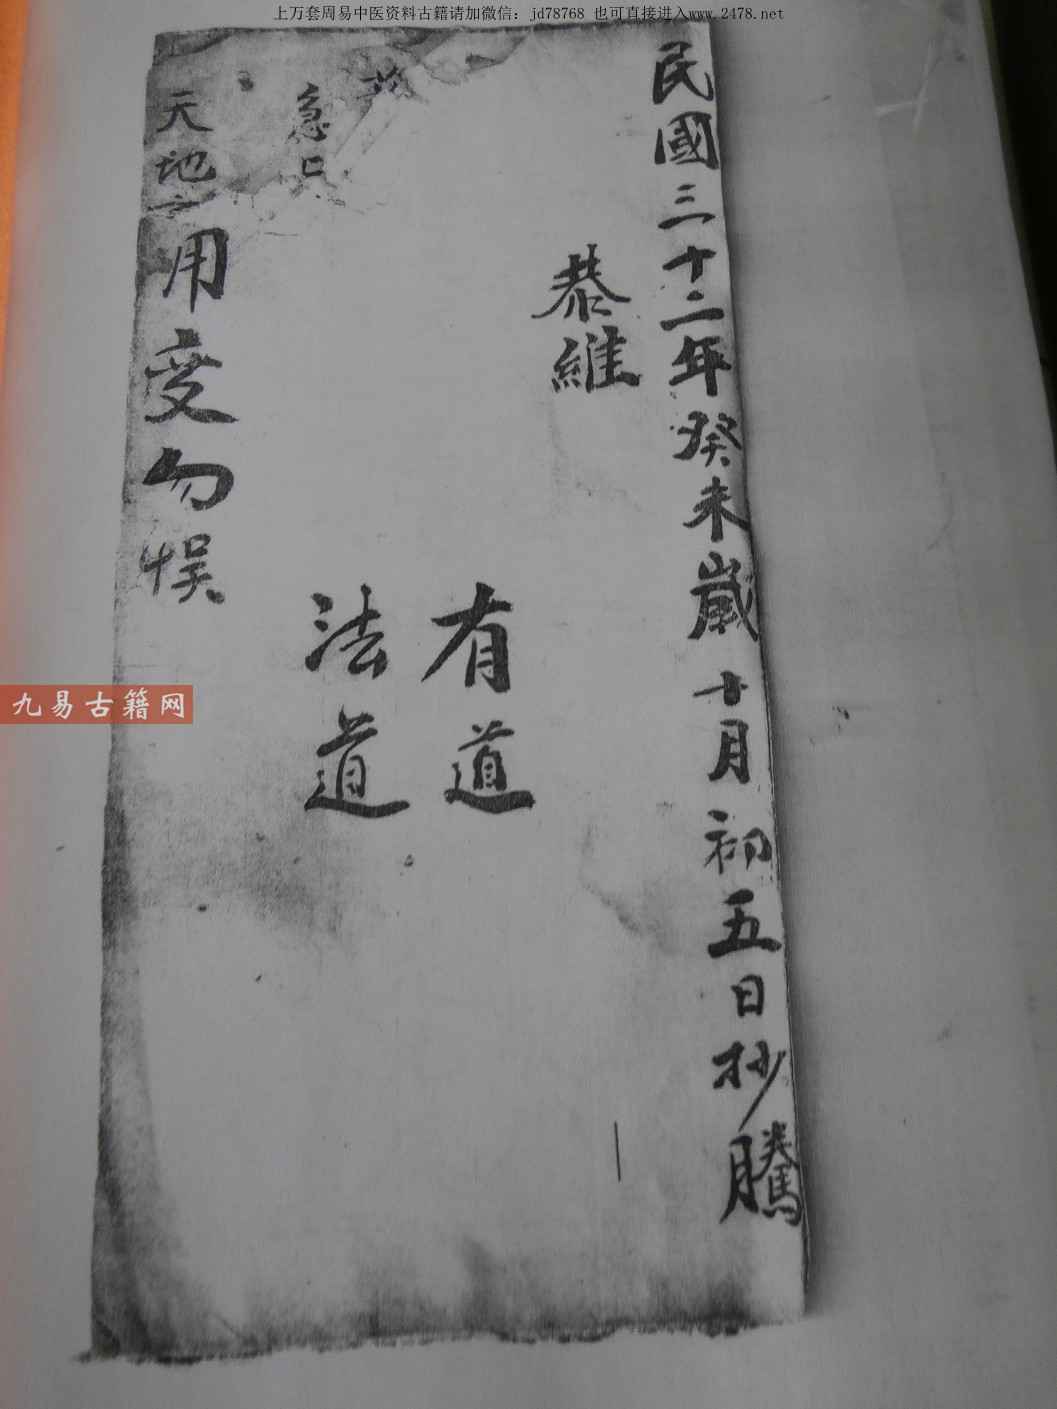 上万套周易中医资料古籍请加微信：jd78768 也可直接进入www.2478.net
民國三十二年癸未歲十月初五日抄騰
恭維
有道
法道
急
天地之用变勿悮
九易古籍网